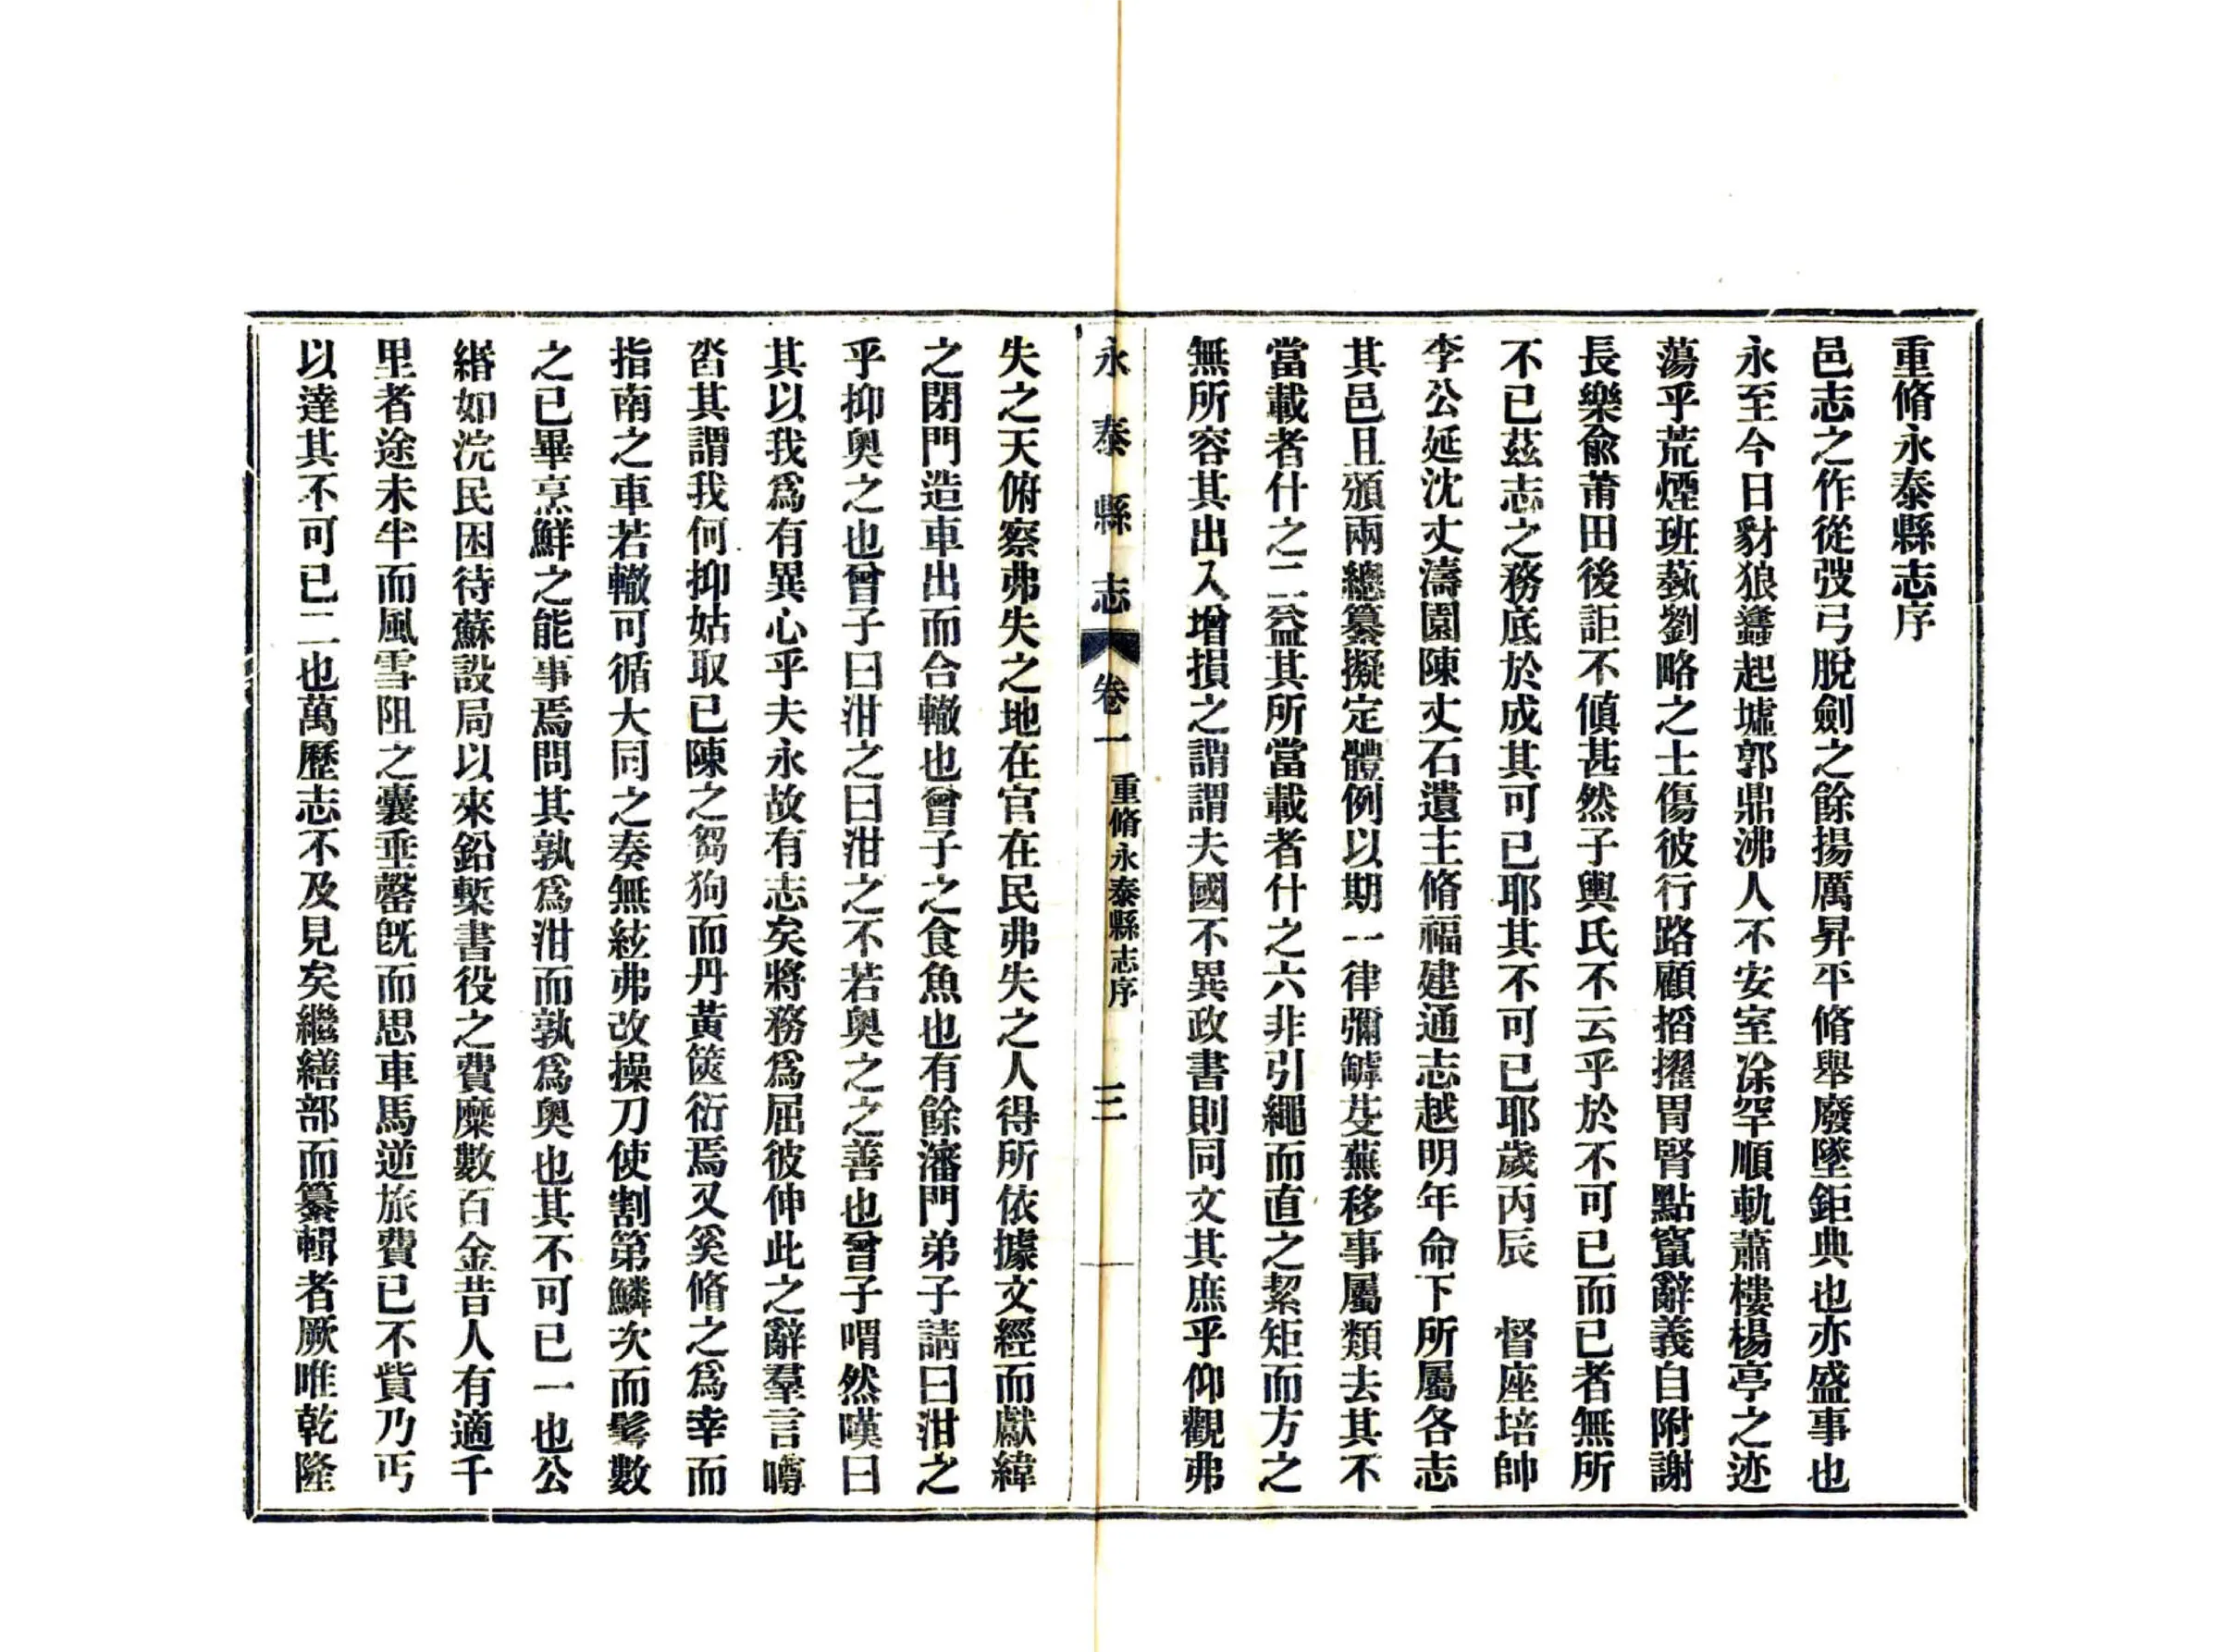 重脩永泰縣志序
邑志之作從弢弓脫劍之餘揚厲昇平脩舉廢墜鉅典也亦盛事也
永至今日豺狼蠭起墟郭鼎沸人不安室凃罕順軌蕭樓楊亭之迹
蕩乎荒煙班蓺劉略之士傷彼行路顧搯擢胃腎點竄辭義自附謝
長樂兪莆田後詎不傎甚然子輿氏不云乎於不可已而已者無所
不已茲志之務底於成其可已耶其不可已耶歲丙辰　督座培帥
李公延沈丈濤園陳丈石遺主脩福建通志越明年命下所屬各志
其邑且頒兩總纂擬定體例以期一律彌罅芟蕪移事屬類去其不
當載者什之二益其所當載者什之六非引繩而直之絜矩而方之
無所容其出入增損之謂謂夫國不異政書則同文其庶乎仰觀弗
永泰縣志　卷一　重脩永泰縣志序　三
失之天俯察弗失之地在官在民弗失之人得所依據文經而獻緯
之閉門造車出而合轍也曾子之食魚也有餘瀋門弟子請曰泔之
乎抑奧之也曾子曰泔之曰泔之不若奧之之善也曾子喟然嘆曰
其以我爲有異心乎夫永故有志矣將務爲屈彼伸此之辭羣言噂
沓其謂我何抑姑取已陳之芻狗而丹黃篋衍焉又奚脩之爲幸而
指南之車若轍可循大同之奏無絃弗改操刀使割第鱗次而髣數
之已畢烹鮮之能事焉問其孰爲泔而孰爲奧也其不可已一也公
緡如浣民困待蘇設局以來鉛槧書役之費糜數百金昔人有適千
里者途未半而風雪阻之囊垂罄旣而思車馬逆旅費已不貲乃丐
以達其不可已二也萬歷志不及見矣繼繕部而纂輯者厥唯乾隆